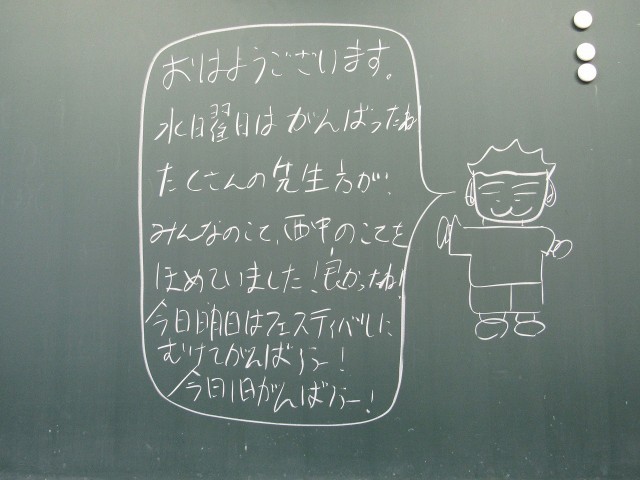 おはようございます。
水曜日はがんばったね
たくさんの先生方が、
みんなのこと、西中のことを
ほめていました!良かったね!
今日明日はフェスティバルに
むけてがんばろー!
今日1日がんばろー!